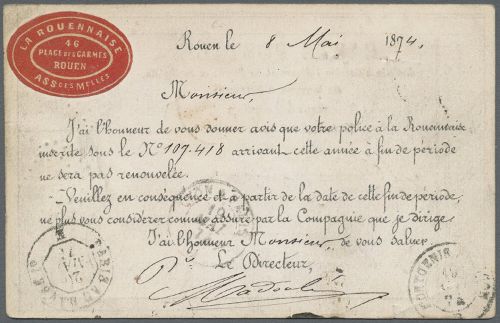 LA ROUENNAISE
46
PLACE DES CARMES
ROUEN
ASSCES MELLES
Rouen le 8 Mai 1874,
Monsieur,
J'ai l'honneur de vous donner avis que votre police à la Rouennaise
inscrite sous le N° 107.418 arrivant cette année à fin de période
ne sera pas renouvelée.
Veuillez en conséquence et à partir de la date de cette fin de période,
ne plus vous considérer comme assuré par la Compagnie que je dirige.
J'ai l'honneur Monsieur de vous saluer.
Le Directeur,